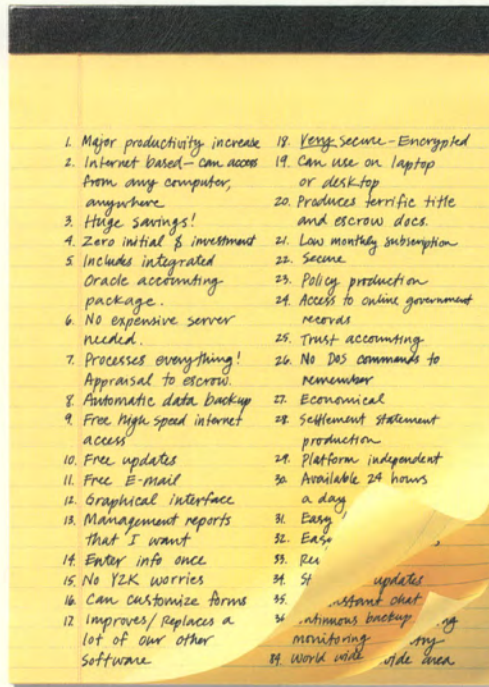 1. Major productivity increase
2. Internet based – can access
from any computer,
anywhere
3. Huge savings!
4. Zero initial $ investment
5. Includes integrated
Oracle accounting
package.
6. No expensive server
needed.
7. Processes everything!
Appraisal to escrow.
8. Automatic data backup
9. Free high speed internet
access
10. Free updates
11. Free E-mail
12. Graphical interface
13. Management reports
that I want
14. Enter info once
15. No Y2K worries
16. Can customize forms
17. Improves/Replaces a
lot of our other
software
18. Very secure – Encrypted
19. Can use on laptop
or desktop
20. Produces terrific title
and escrow docs.
21. Low monthly subscription
22. Secure
23. Policy production
24. Access to online government
records
25. Trust accounting
26. No DOS commands to
remember
27. Economical
28. Settlement statement
production
29. Platform independent
30. Available 24 hours
a day
31. Easy
32.
33.
34. updates
35. chat
36. backup
monitoring
39. World wide area